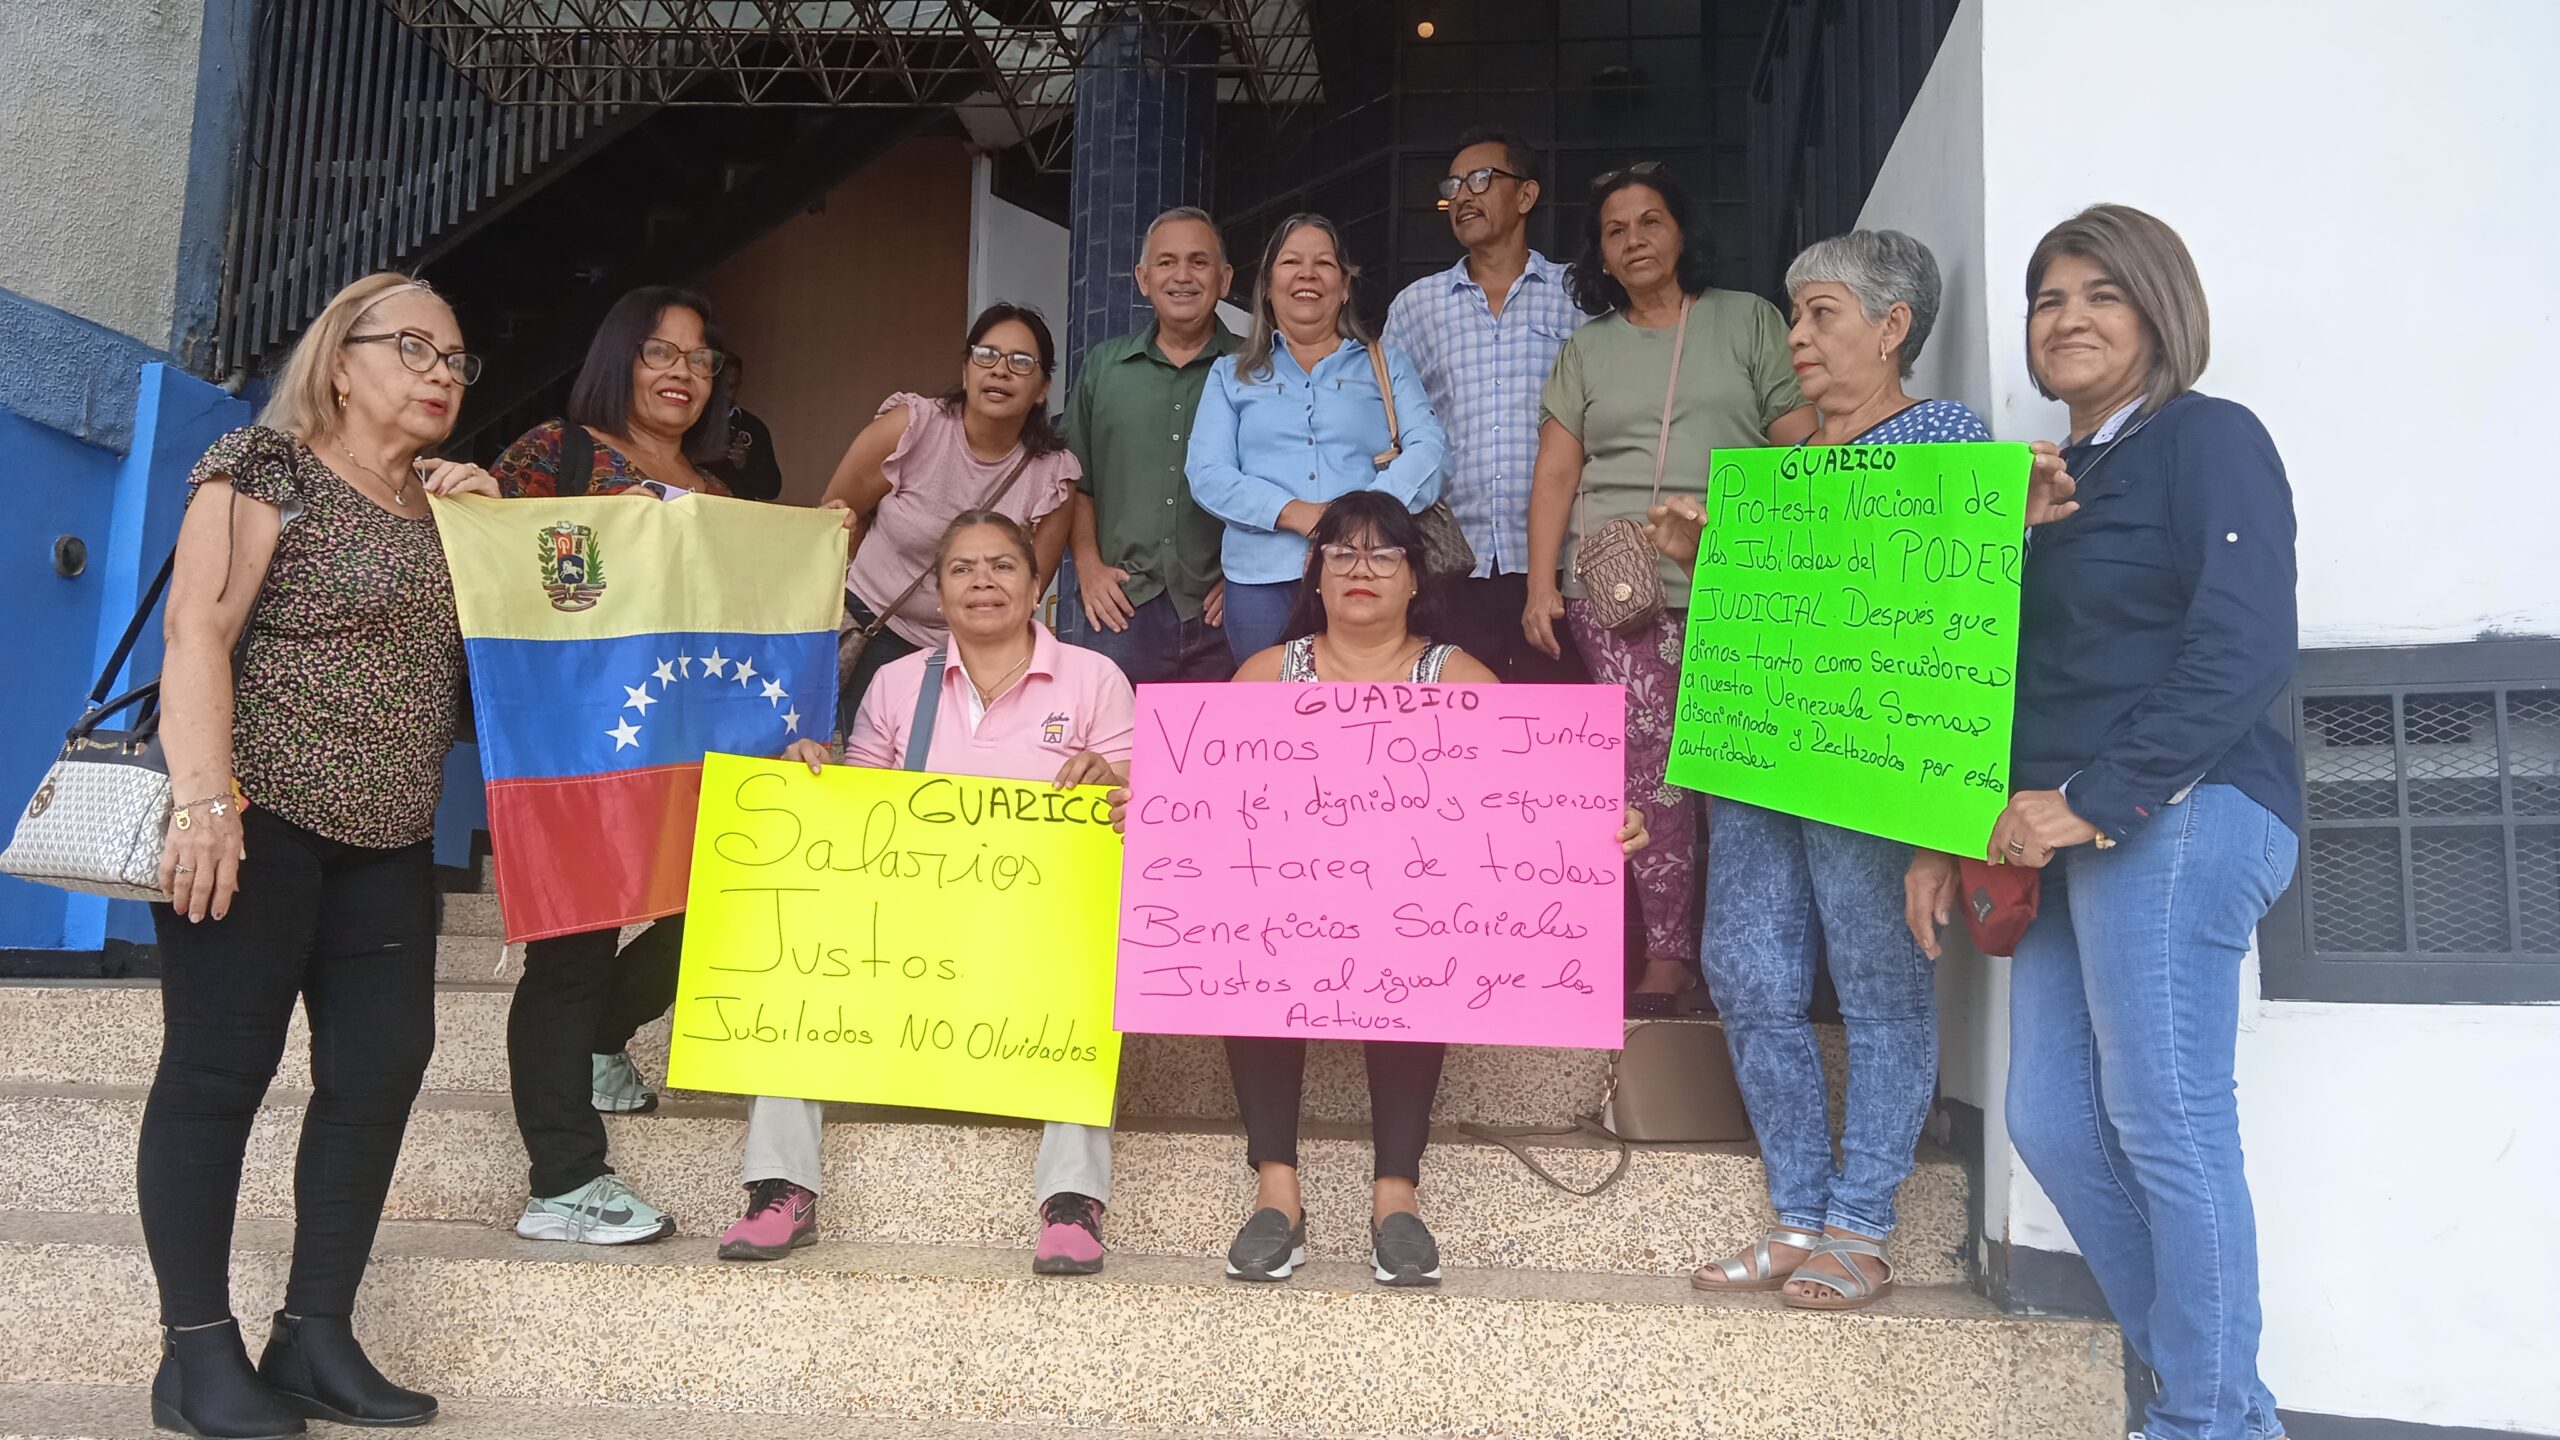 GUARICO
Salarios
Justos.
Jubilados NO Olvidados
GUARICO
Vamos Todos Juntos
con fé, dignidad y esfuerzos
es tarea de todos
Beneficios Salariales
Justos al igual que los
Activos.
GUARICO
Protesta Nacional de
los Jubilados del PODER
JUDICIAL. Después que
dimos tanto como Servidores
a nuestra Venezuela Somos
discriminados y Rechazados por estas
autoridades.